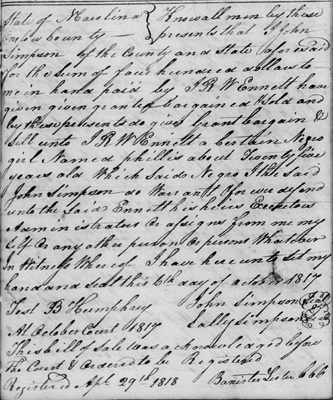 State of N Carolina } Know all men by these
Onslow County } presents that I John
Simpson of the County and State aforesaid
for the sum of four hundred dollars to
me in hand paid by J R W Ennett have
given granted bargained & Sold and
by these presents do give Grant bargain &
Sell unto J R W Ennett a certain Negro
girl Named phillis about Twenty five
years old Which Said Negro I the said
John Simpson do Warrant & forever defend
unto the Said Ennett his heirs Executors
Administrators & assigns from me my
Self & any other person or persons Whatever
In Witness Whereof I have here unto set my
hand and seal this 6th day of octobr 1817
Test B Humphrey John Simpson Seal
Sally Simpson
At October Court 1817
This bill of Sale was acknowledged before
the Court & ordered to be Registered
Registered Apl 29th 1818 Banister Lester